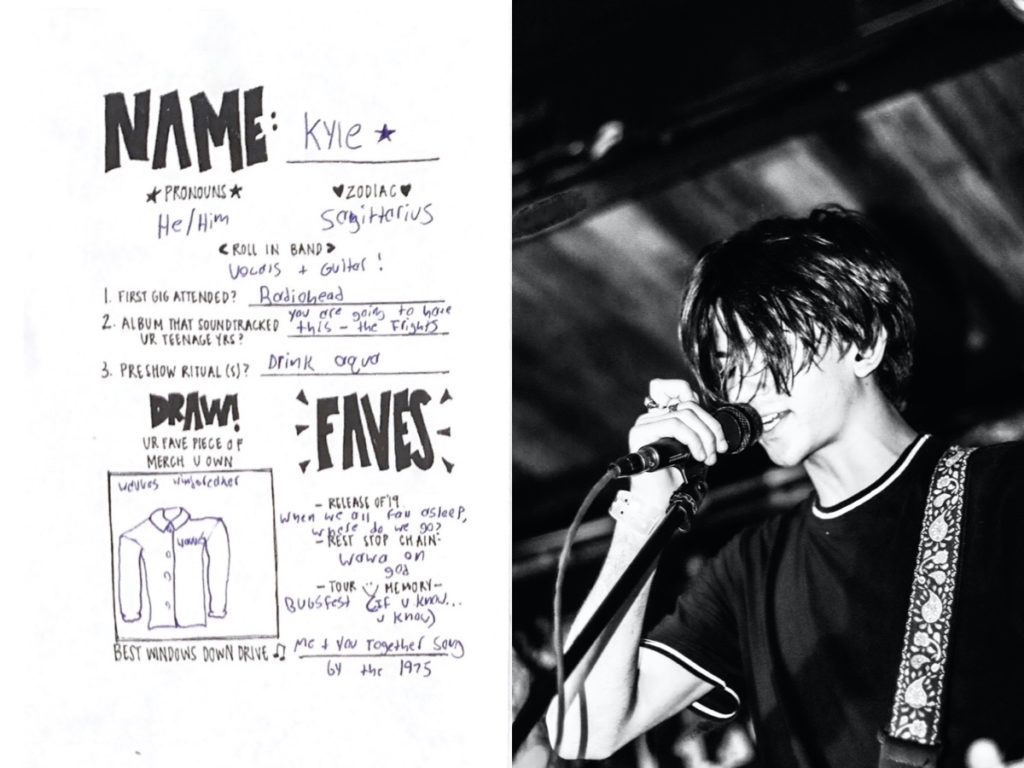 NAME: Kyle ★
★PRONOUNS★
He/Him
♥ZODIAC♥
Sagittarius
<ROLL IN BAND>
Vocals + Guitar!
1. FIRST GIG ATTENDED? Radiohead
2. ALBUM THAT SOUNDTRACKED UR TEENAGE YRS?
you are going to hate
this - the Frights
3. PRESHOW RITUAL(S)? Drink aqua
DRAW!
UR FAVE PIECE OF
MERCH U OWN
wallows windbreaker
FAVES
- RELEASE OF '19
When we all fall asleep,
where do we go?
- REST STOP CHAIN -
Wawa on
god
- TOUR MEMORY -
BUGSFEST (IF u know...
u know)
BEST WINDOWS DOWN DRIVE ♫ Me + You Together Song
by the 1975